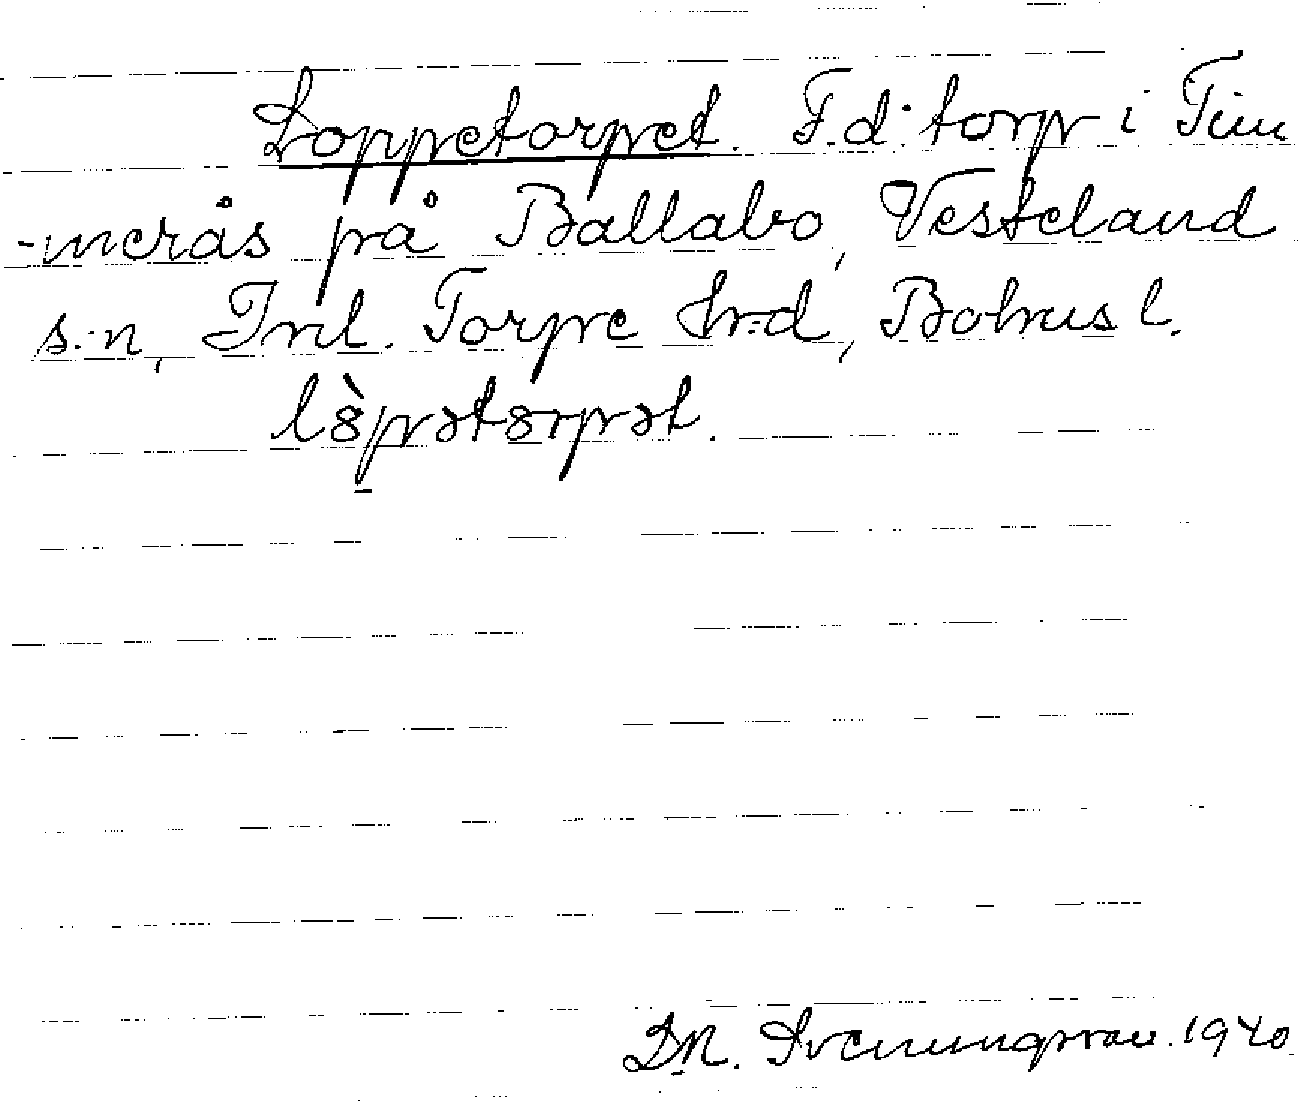 Loppetorpet. F.d. torp i Tim
-merås på Ballabo, Vesteland
s:n, Inl. Torpe hr:d, Bohusl.
lȣ̀pətȣrpət.
Svenungsson. 1940